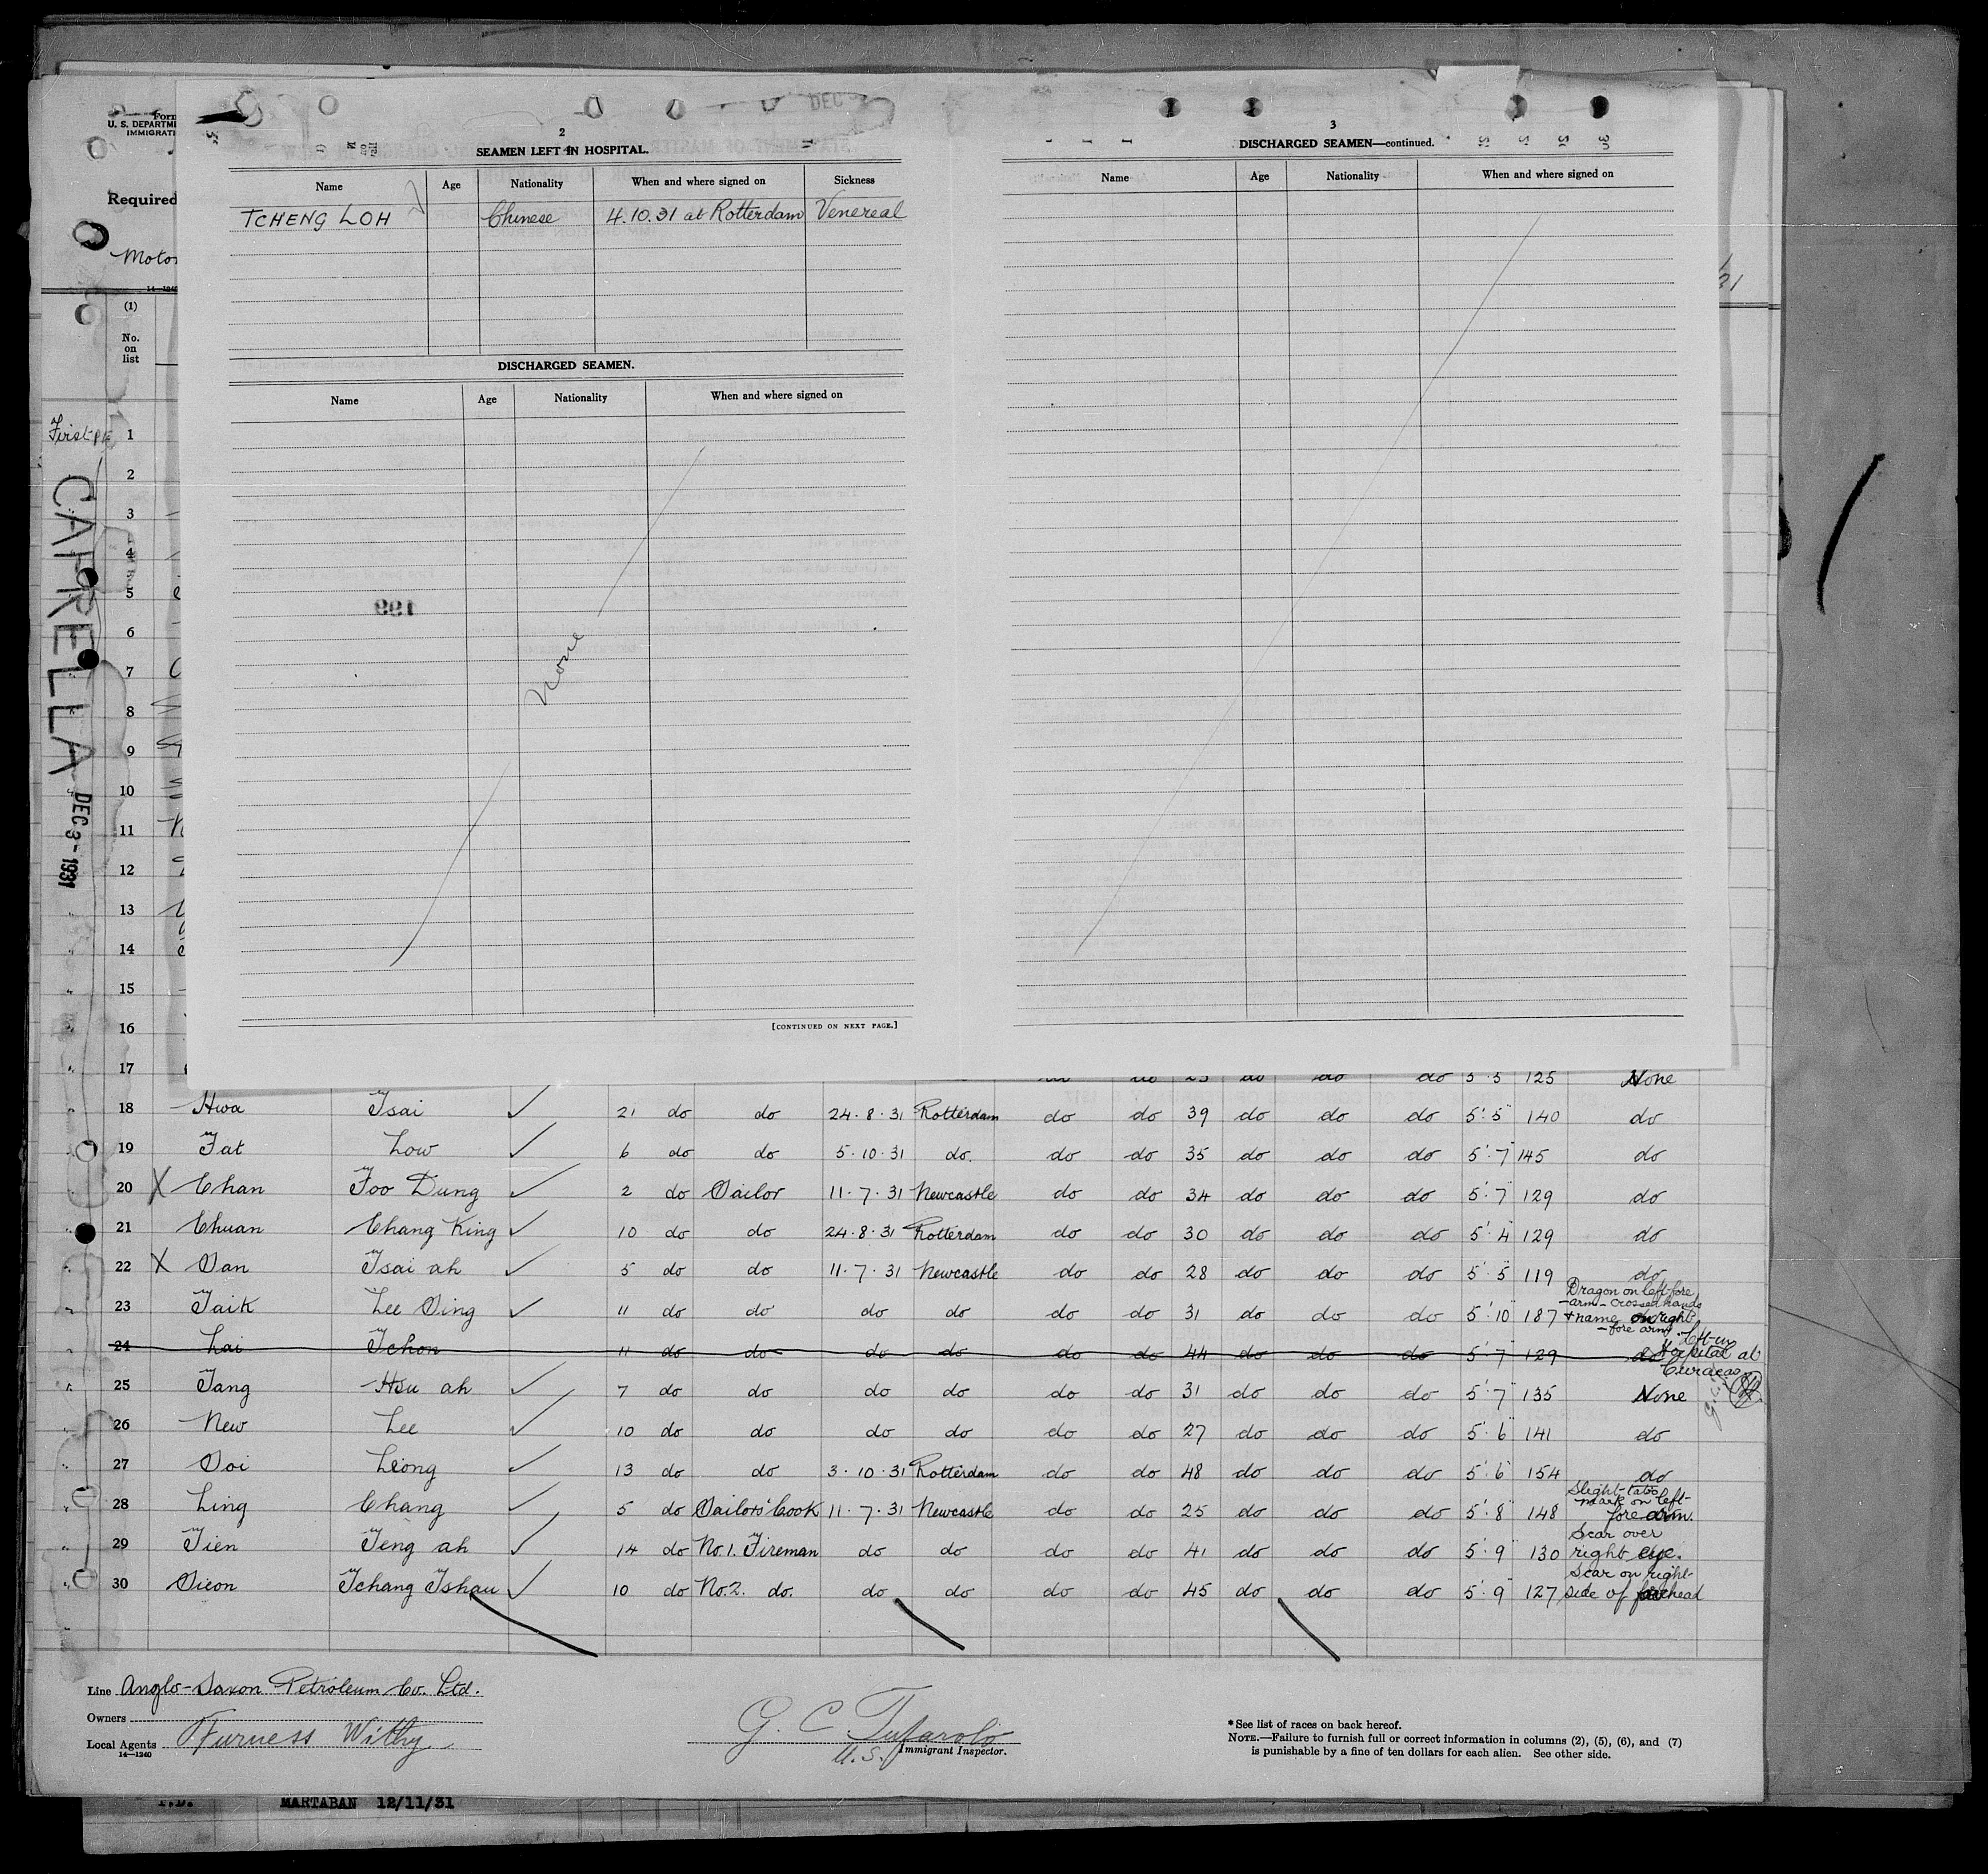 Form
U. S. DEPARTME
IMMIGRATI
Required
Motor
14—1240
(1)
No.
on
list
First
CAPRELLA DEC 3 - 1931
1
2
3
4
5
6
7
8
9
10
11
12
13
14
15
16
17
DEC 3
2
SEAMEN LEFT IN HOSPITAL.
Name Age Nationality When and where signed on Sickness
TCHENG LOH Chinese 4.10.31 at Rotterdam Venereal
DISCHARGED SEAMEN.
Name Age Nationality When and where signed on
None
[CONTINUED ON NEXT PAGE.]
3
DISCHARGED SEAMEN—continued.
Name Age Nationality When and where signed on
do do 23 do do do 5·5 125 None
18 Hwa Tsai ✓ 21 do do 24·8·31 Rotterdam do do 39 do do do 5'·5" 140 do
19 Tat Low ✓ 6 do do 5·10·31 do. do do 35 do do do 5'·7" 145 do
20 X Chan Foo Dung ✓ 2 do Sailor 11·7·31 Newcastle do do 34 do do do 5'·7" 129 do
21 Chuan Chang King ✓ 10 do do 24·8·31 Rotterdam do do 30 do do do 5'·4" 129 do
22 X San Tsai ah ✓ 5 do do 11·7·31 Newcastle do do 28 do do do 5'·5" 119 do
23 Taik Lee Sing ✓ 11 do do do do do do 31 do do do 5'·10" 187 Dragon on left fore
-arm - crossed hands
+ name on right
- fore arm
24 Lai Tchon 11 do do do do do do 44 do do do 5'·7" 129 do left in
Hospital at
Curacao
25 Tang Hsu ah ✓ 7 do do do do do do 31 do do do 5'·7" 135 None
26 New Lee ✓ 10 do do do do do do 27 do do do 5'·6" 141 do
27 Soi Leong ✓ 13 do do 3·10·31 Rotterdam do do 48 do do do 5'·6" 154 do
28 Ling Chang ✓ 5 do Sailors' Cook 11·7·31 Newcastle do do 25 do do do 5'·8" 148 Slight tattoo
mark on left
fore arm.
29 Tien Teng ah ✓ 14 do No.1. Fireman do do do do 41 do do do 5'·9" 130 Scar over
right eye.
30 Sieon Tchang Tshau ✓ 10 do No.2. do. do do do do 45 do do do 5'·9" 127 Scar on right
side of forehead
Line Anglo-Saxon Petroleum Co. Ltd.
Owners
Local Agents Furness Withy
14—1240
G. C. Tufarolo
U.S. Immigrant Inspector.
*See list of races on back hereof.
NOTE.—Failure to furnish full or correct information in columns (2), (5), (6), and (7)
is punishable by a fine of ten dollars for each alien. See other side.
MARTABAN 12/11/31